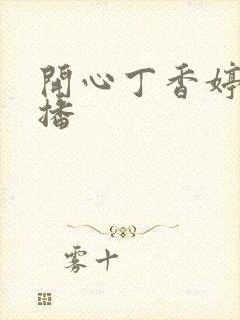 開心丁香婷
播
雾十